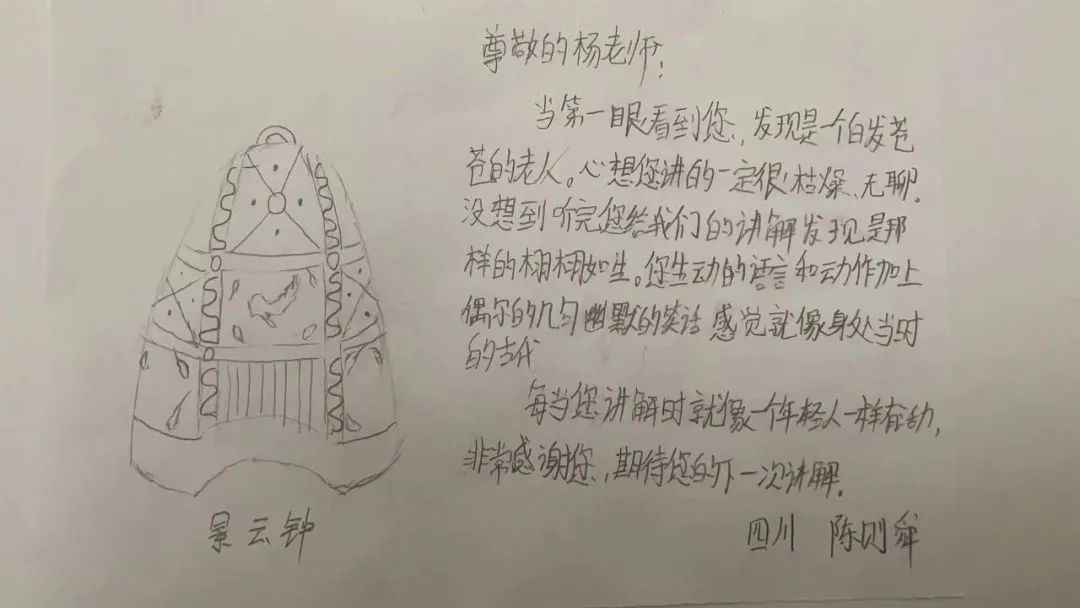 尊敬的杨老师:
当第一眼看到您,发现是一个白发苍
苍的老人。心想您讲的一定很枯燥、无聊。
没想到听完您给我们的讲解发现是那
样的栩栩如生。您生动的语言和动作加上
偶尔的几句幽默的笑话感觉就像身处当时
的古代
每当您讲解时就像一个年轻人一样有力,
非常感谢您,期待您的下一次讲解。
四川 陈则舜
景云钟